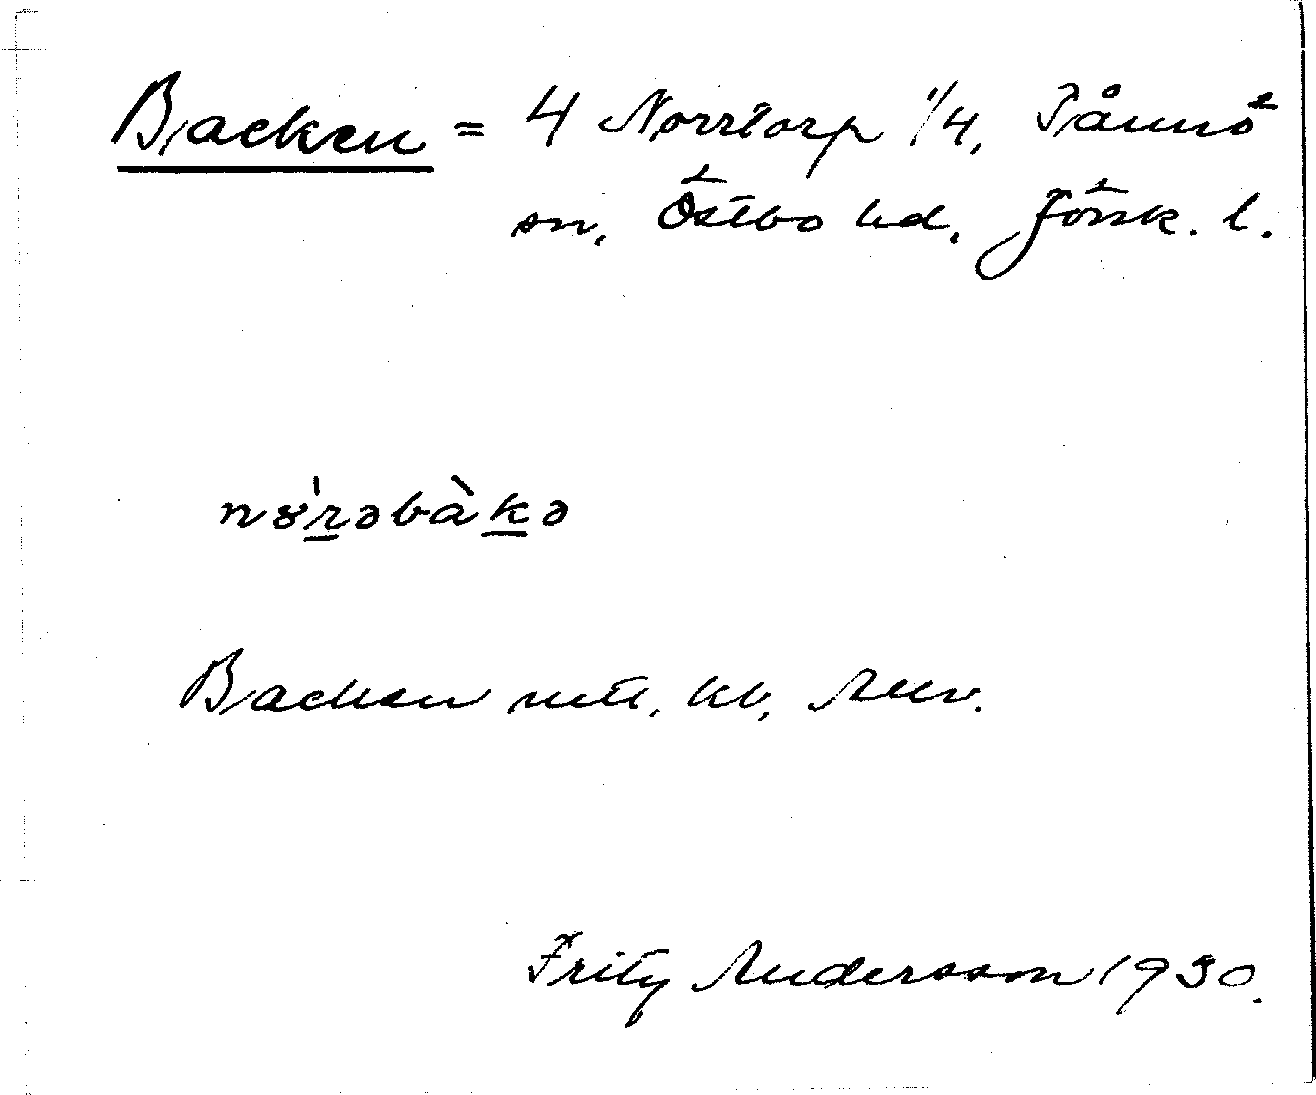 Backen = 4 Norrtorp 1/4, Tånnö
sn, Östbo hd, Jönk. l.
nɤ́rəbàkə
Backen
Fritz Andersson 1930.